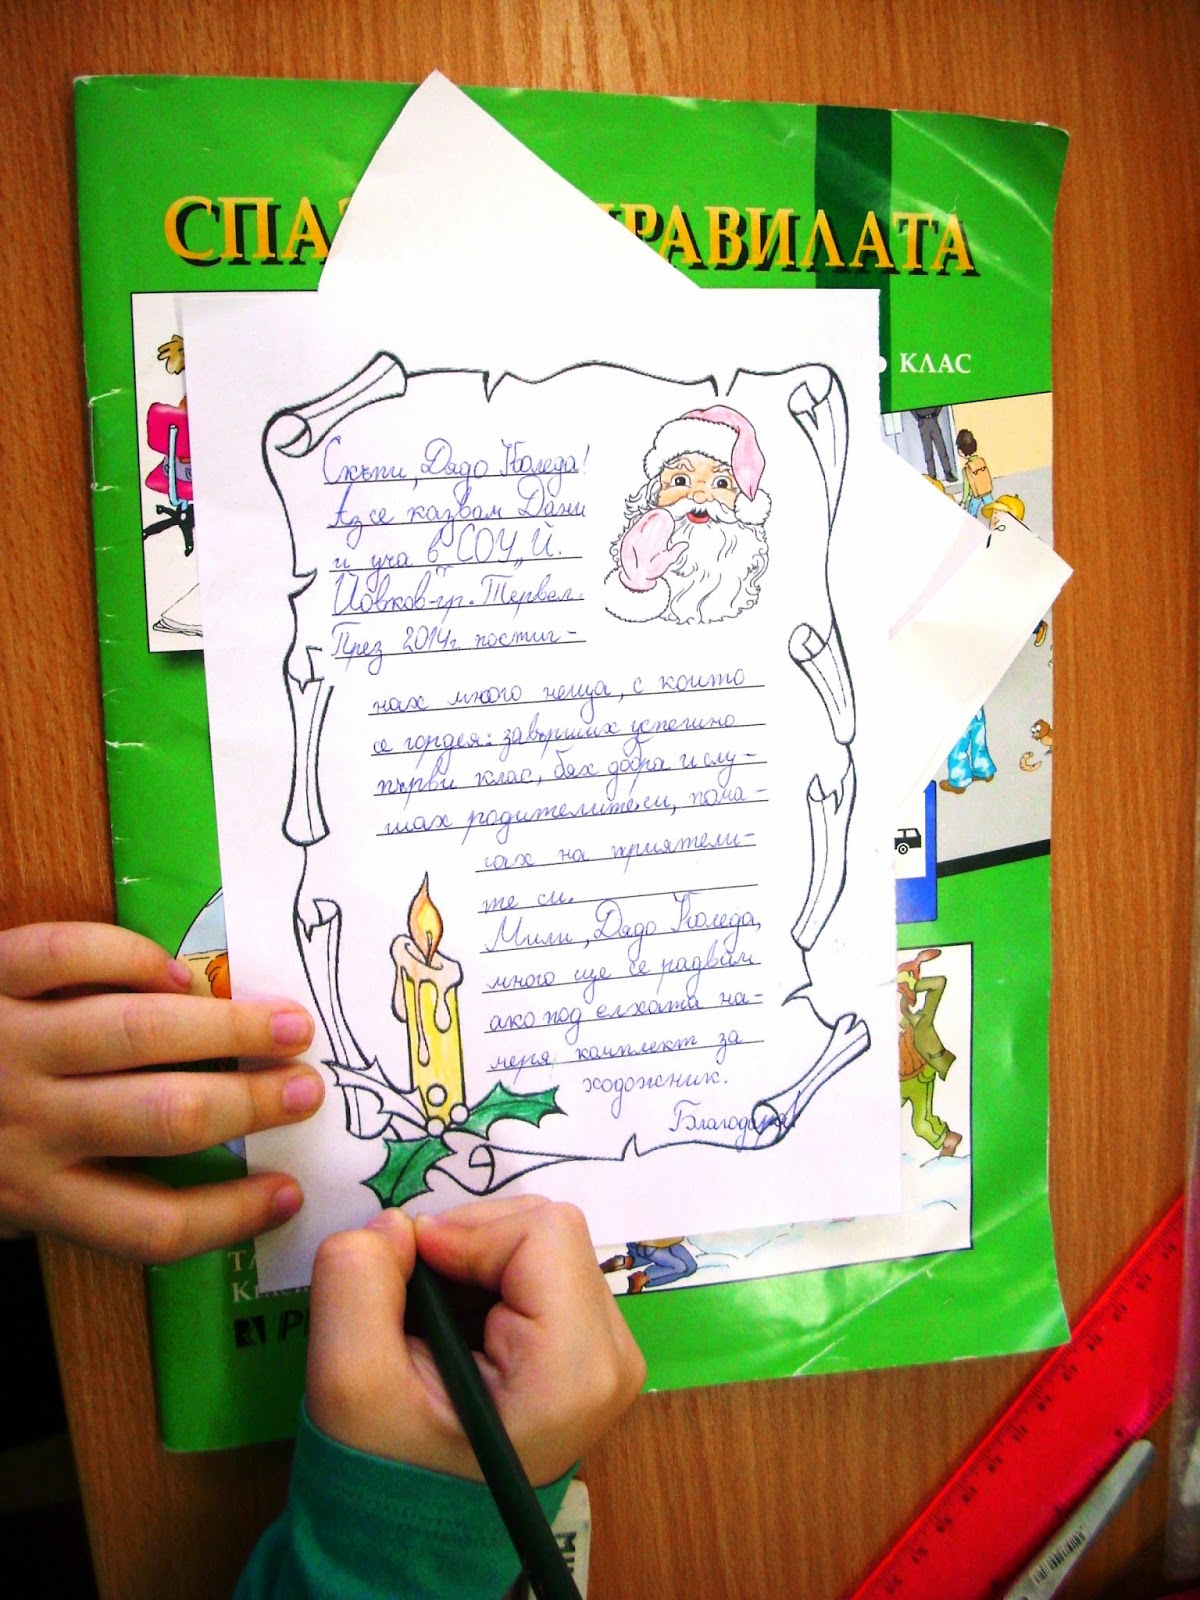 СПА РАВИЛАТА
КЛАС
Скъпи, Дядо Коледа!
Аз се казвам Дани
и уча в СОУ „Й.
Йовков"-гр. Тервел.
През 2014г. постиг-
нах много неща, с които
се гордея: завърших успешно
първи клас, бях добра и слу-
шах родителите си, пома-
гах на приятели-
те си.
Мили, Дядо Коледа,
много ще се радвам
ако под елхата на-
меря комплект за
ходожник.
Благодаря!